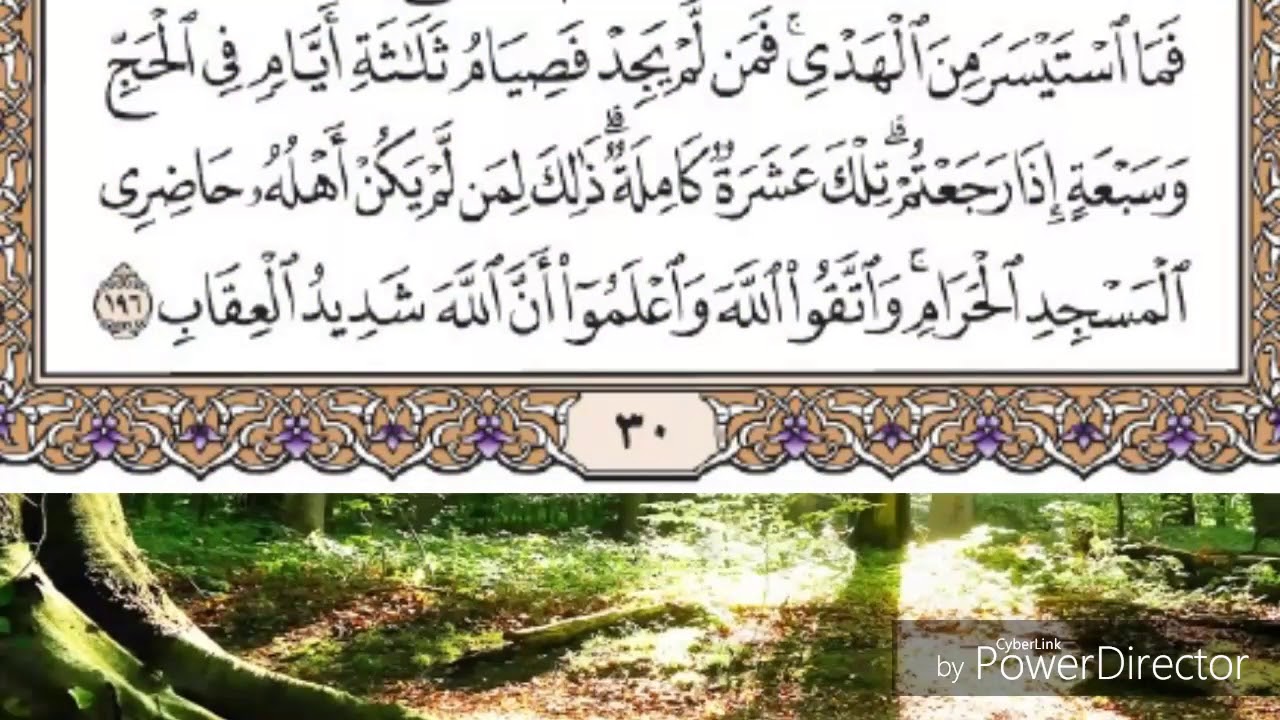 فَمَا ٱسْتَيْسَرَ مِنَ ٱلْهَدْىِ ۚ فَمَن لَّمْ يَجِدْ فَصِيَامُ ثَلَـٰثَةِ أَيَّامٍ فِى ٱلْحَجِّ
وَسَبْعَةٍ إِذَا رَجَعْتُمْ ۗ تِلْكَ عَشَرَةٌ كَامِلَةٌ ۗ ذَٰلِكَ لِمَن لَّمْ يَكُنْ أَهْلُهُۥ حَاضِرِى
ٱلْمَسْجِدِ ٱلْحَرَامِ ۚ وَٱتَّقُوا۟ ٱللَّهَ وَٱعْلَمُوٓا۟ أَنَّ ٱللَّهَ شَدِيدُ ٱلْعِقَابِ ١٩٦
٣٠
CyberLink
by PowerDirector